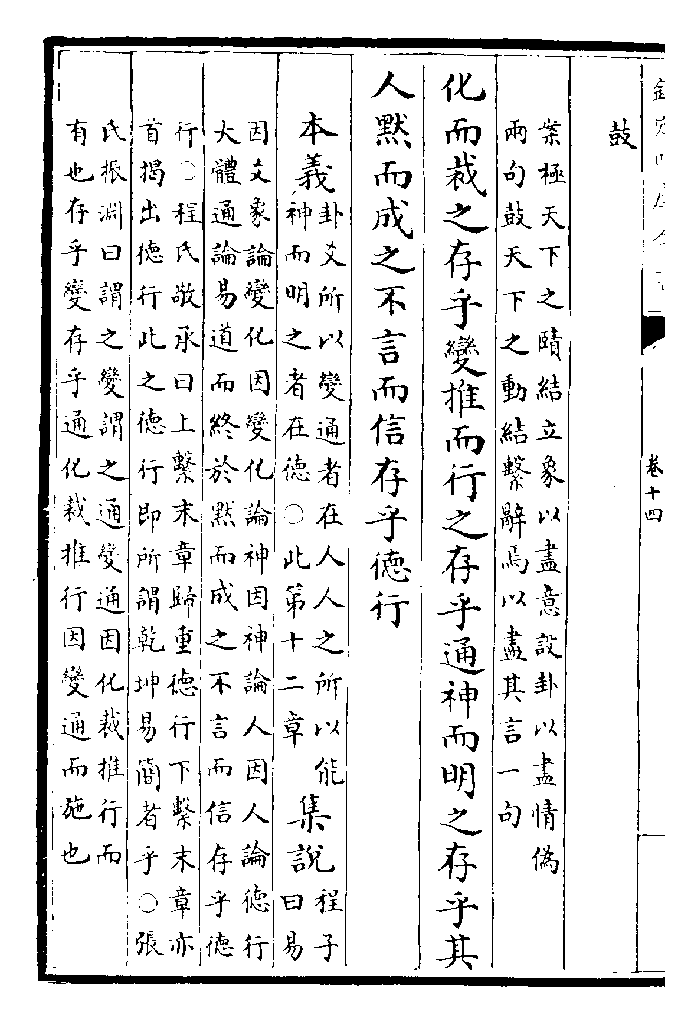 欽定四庫全書
卷十四
鼓
案極天下之賾結立象以盡意設卦以盡情偽
兩句鼓天下之動結繫辭焉以盡其言一句
化而裁之存乎變推而行之存乎通神而明之存乎其
人黙而成之不言而信存乎德行
本義
卦爻所以變通者在人人之所以能
神而明之者在德○此第十二章
集說
程子
曰易
因爻象論變化因變化論神因神論人因人論德行
大體通論易道而終於黙而成之不言而信存乎德
行○程氏敬承曰上繫末章歸重德行下繫末章亦
首揭出德行此之德行即所謂乾坤易簡者乎○張
氏振淵曰謂之變謂之通變通因化裁推行而
有也存乎變存乎通化裁推行因變通而施也